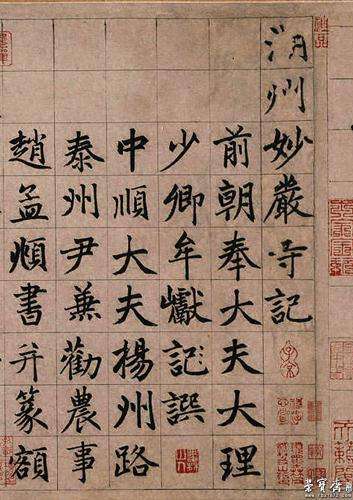 湖州妙嚴寺記
前朝奉大夫大理
少卿牟巘記譔
中順大夫揚州路
泰州尹兼勸農事
趙孟頫書并篆額